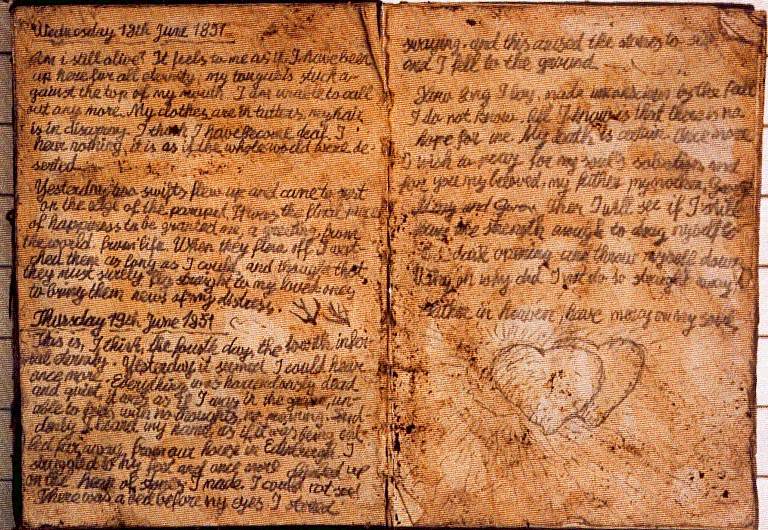 Wednesday 18th June 1851
Am i still alive? It feels to me as if I have been
up here for all eternity, my tongue is stuck a-
gainst the top of my mouth. I am unable to call
out any more. My clothes are in tatters, my hair
is in disarray. I think I have become deaf. I
hear nothing, it is as if the whole world were de-
serted.
Yesterday two swifts flew up and came to rest
on the edge of the parapet. It was the final
of happiness to be granted me, a greeting from
the world, from life. When they flew off I wat-
ched them as long as I could, and thought that
they must surely fly straight to my loved ones
to bring them news of my distress.
Thursday 19th June 1851
This is, I think, the fourth day, the fourth infer-
nal eternity. Yesterday it seemed I could hear
once more. Everything was horrendously dead
and quiet, it was as if I lay in the grave, un-
able to feel, with no thoughts, no meaning. Sud-
denly I heard my name, as if it was being cal-
led far away, from our house in Edinburgh. I
struggled to my feet and once more climbed up
on the heap of stones I made. I could not see!
There was a red before my eyes. I stood
swaying, and this caused the stones to
and I fell to the ground.
How long I lay, made unconscious by the fall
I do not know. All I know is that there is no
hope for me. My death is certain. Once more
I wish to pray for my soul's salvation and
for you my beloved, my father, my mother,
and Then I will see if I still
have the strength enough to drag myself to
dark opening and throw myself down.
why did I not do so straight away?
Father in heaven, have mercy on my soul.